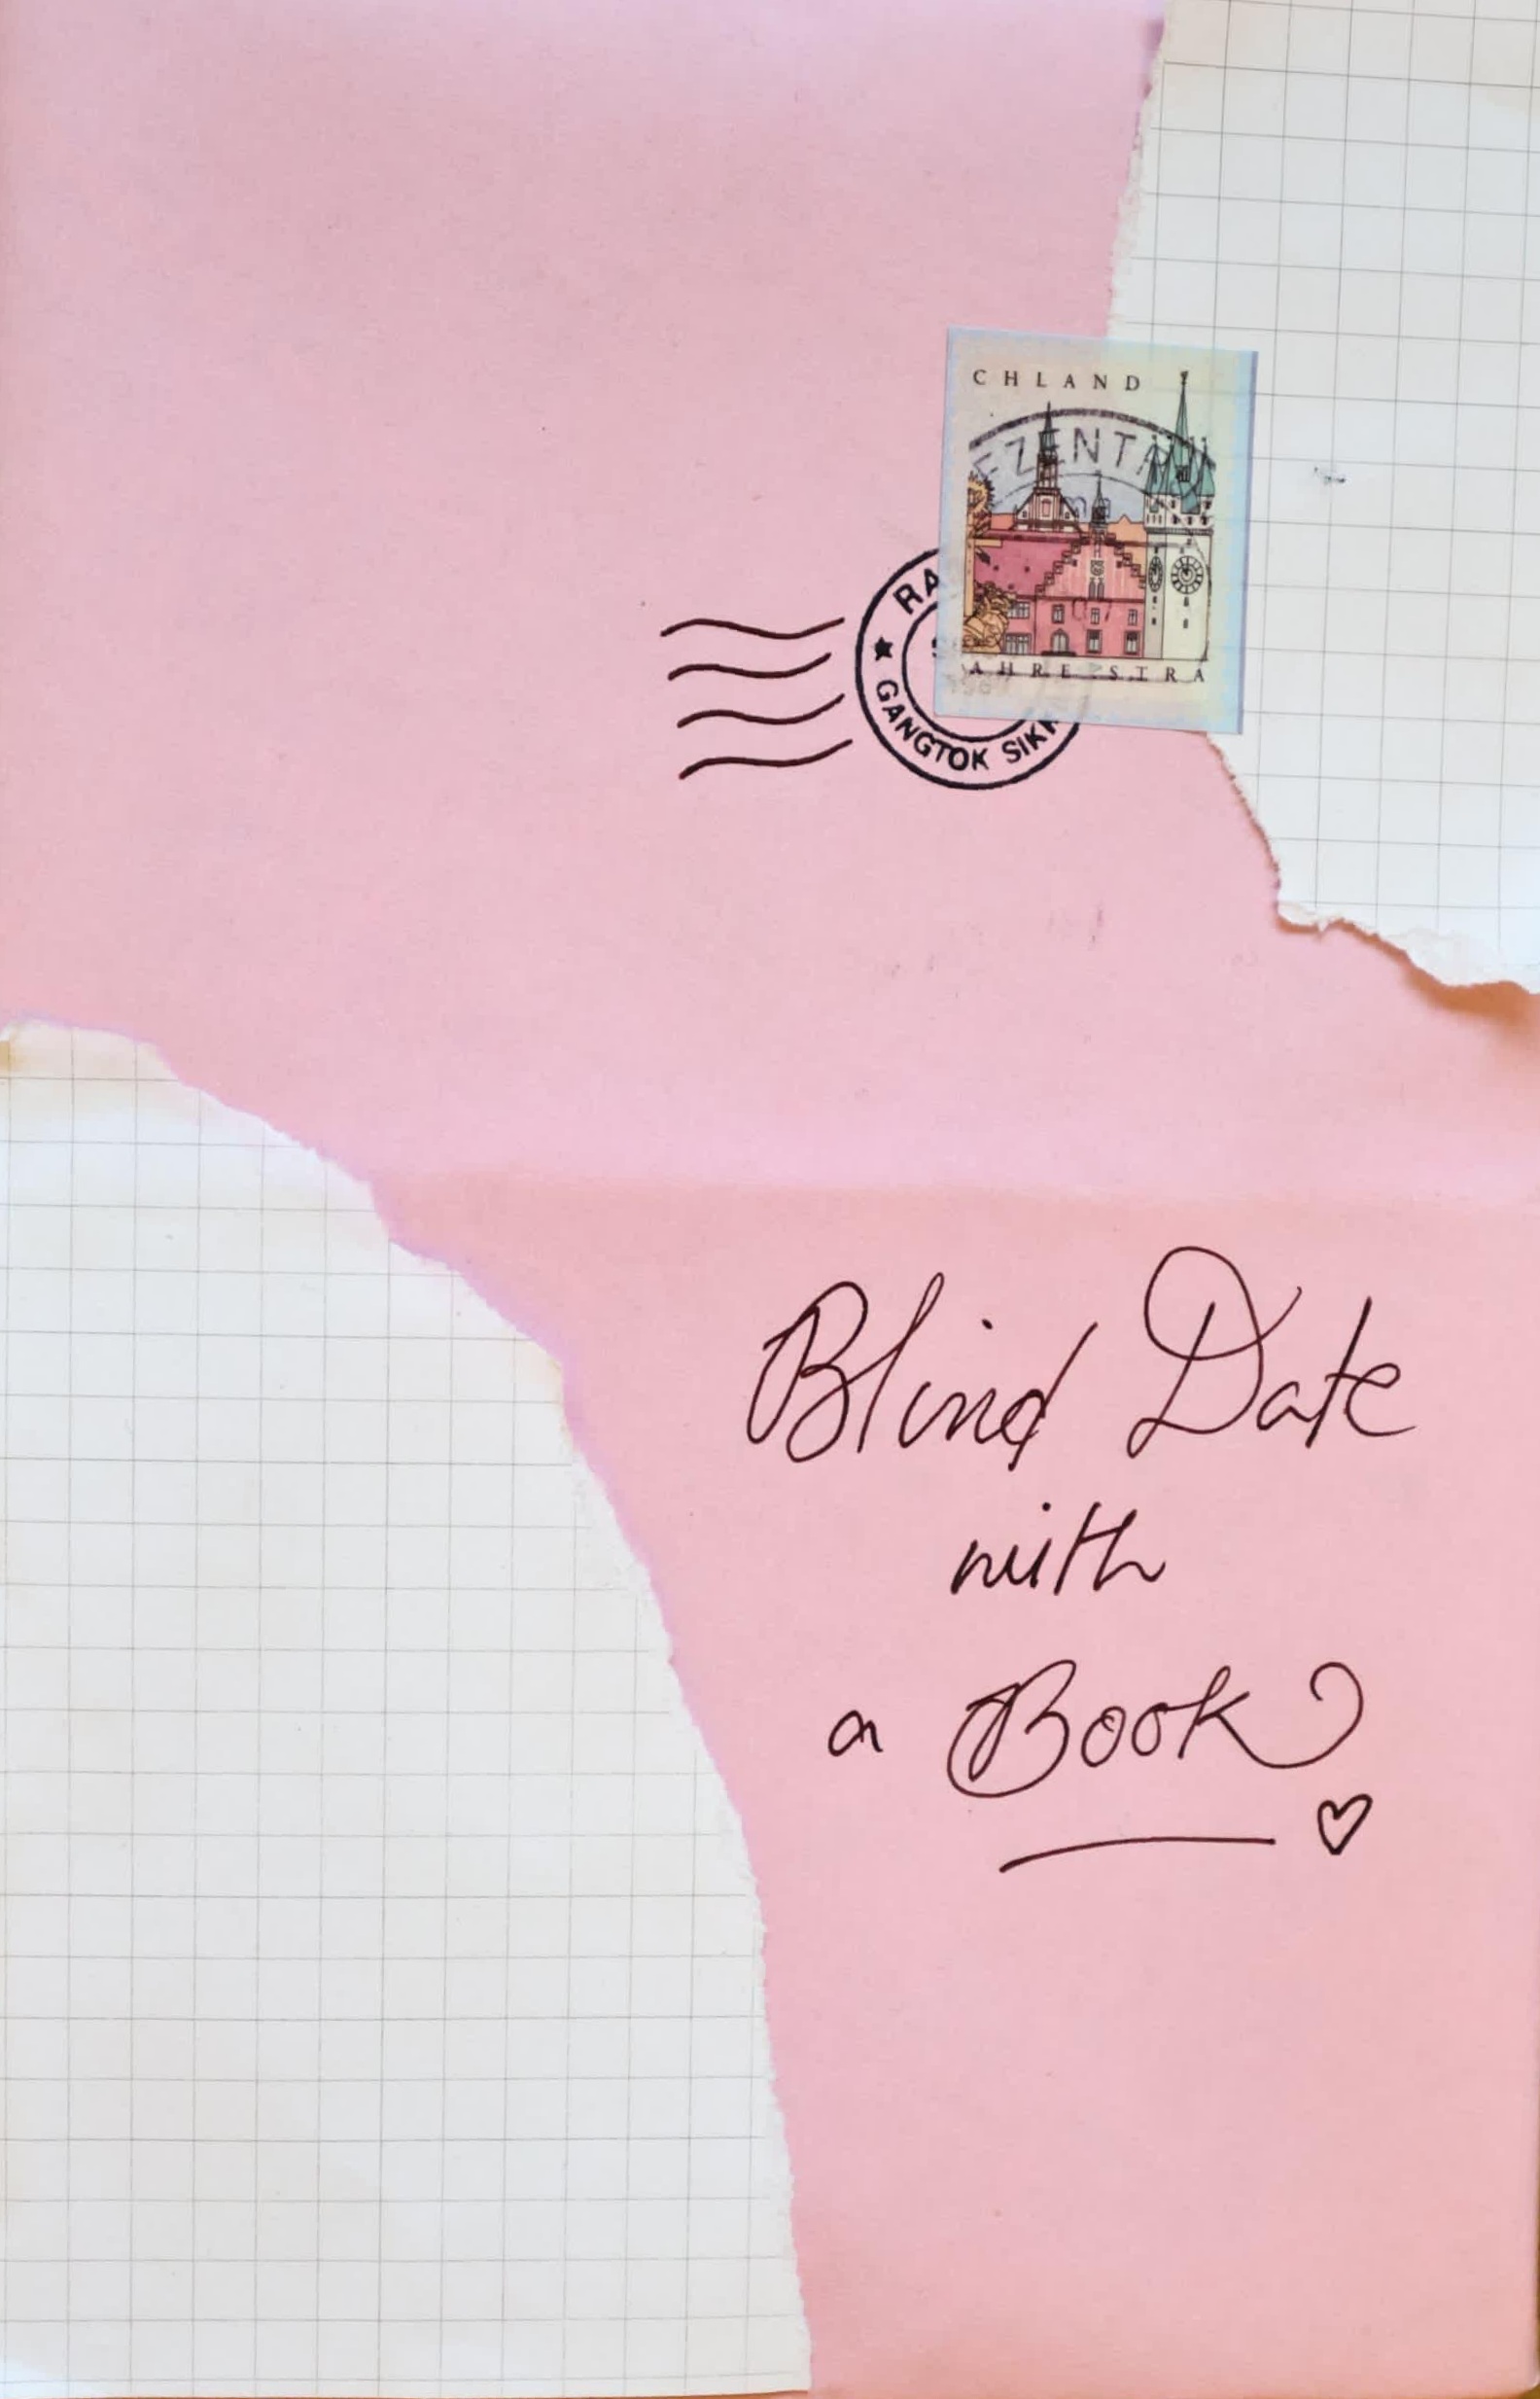 CHLAND
EZENTA
RA
AHRE STRA
GANGTOK SIKK
Blind Date
with
a Book